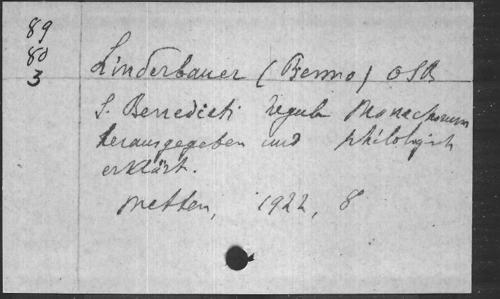 89
80
3
Linderbauer (Benno) OSB
S. Benedicti regula Monachorum
herausgegeben und philologisch
erklärt.
Metten, 1922, 8